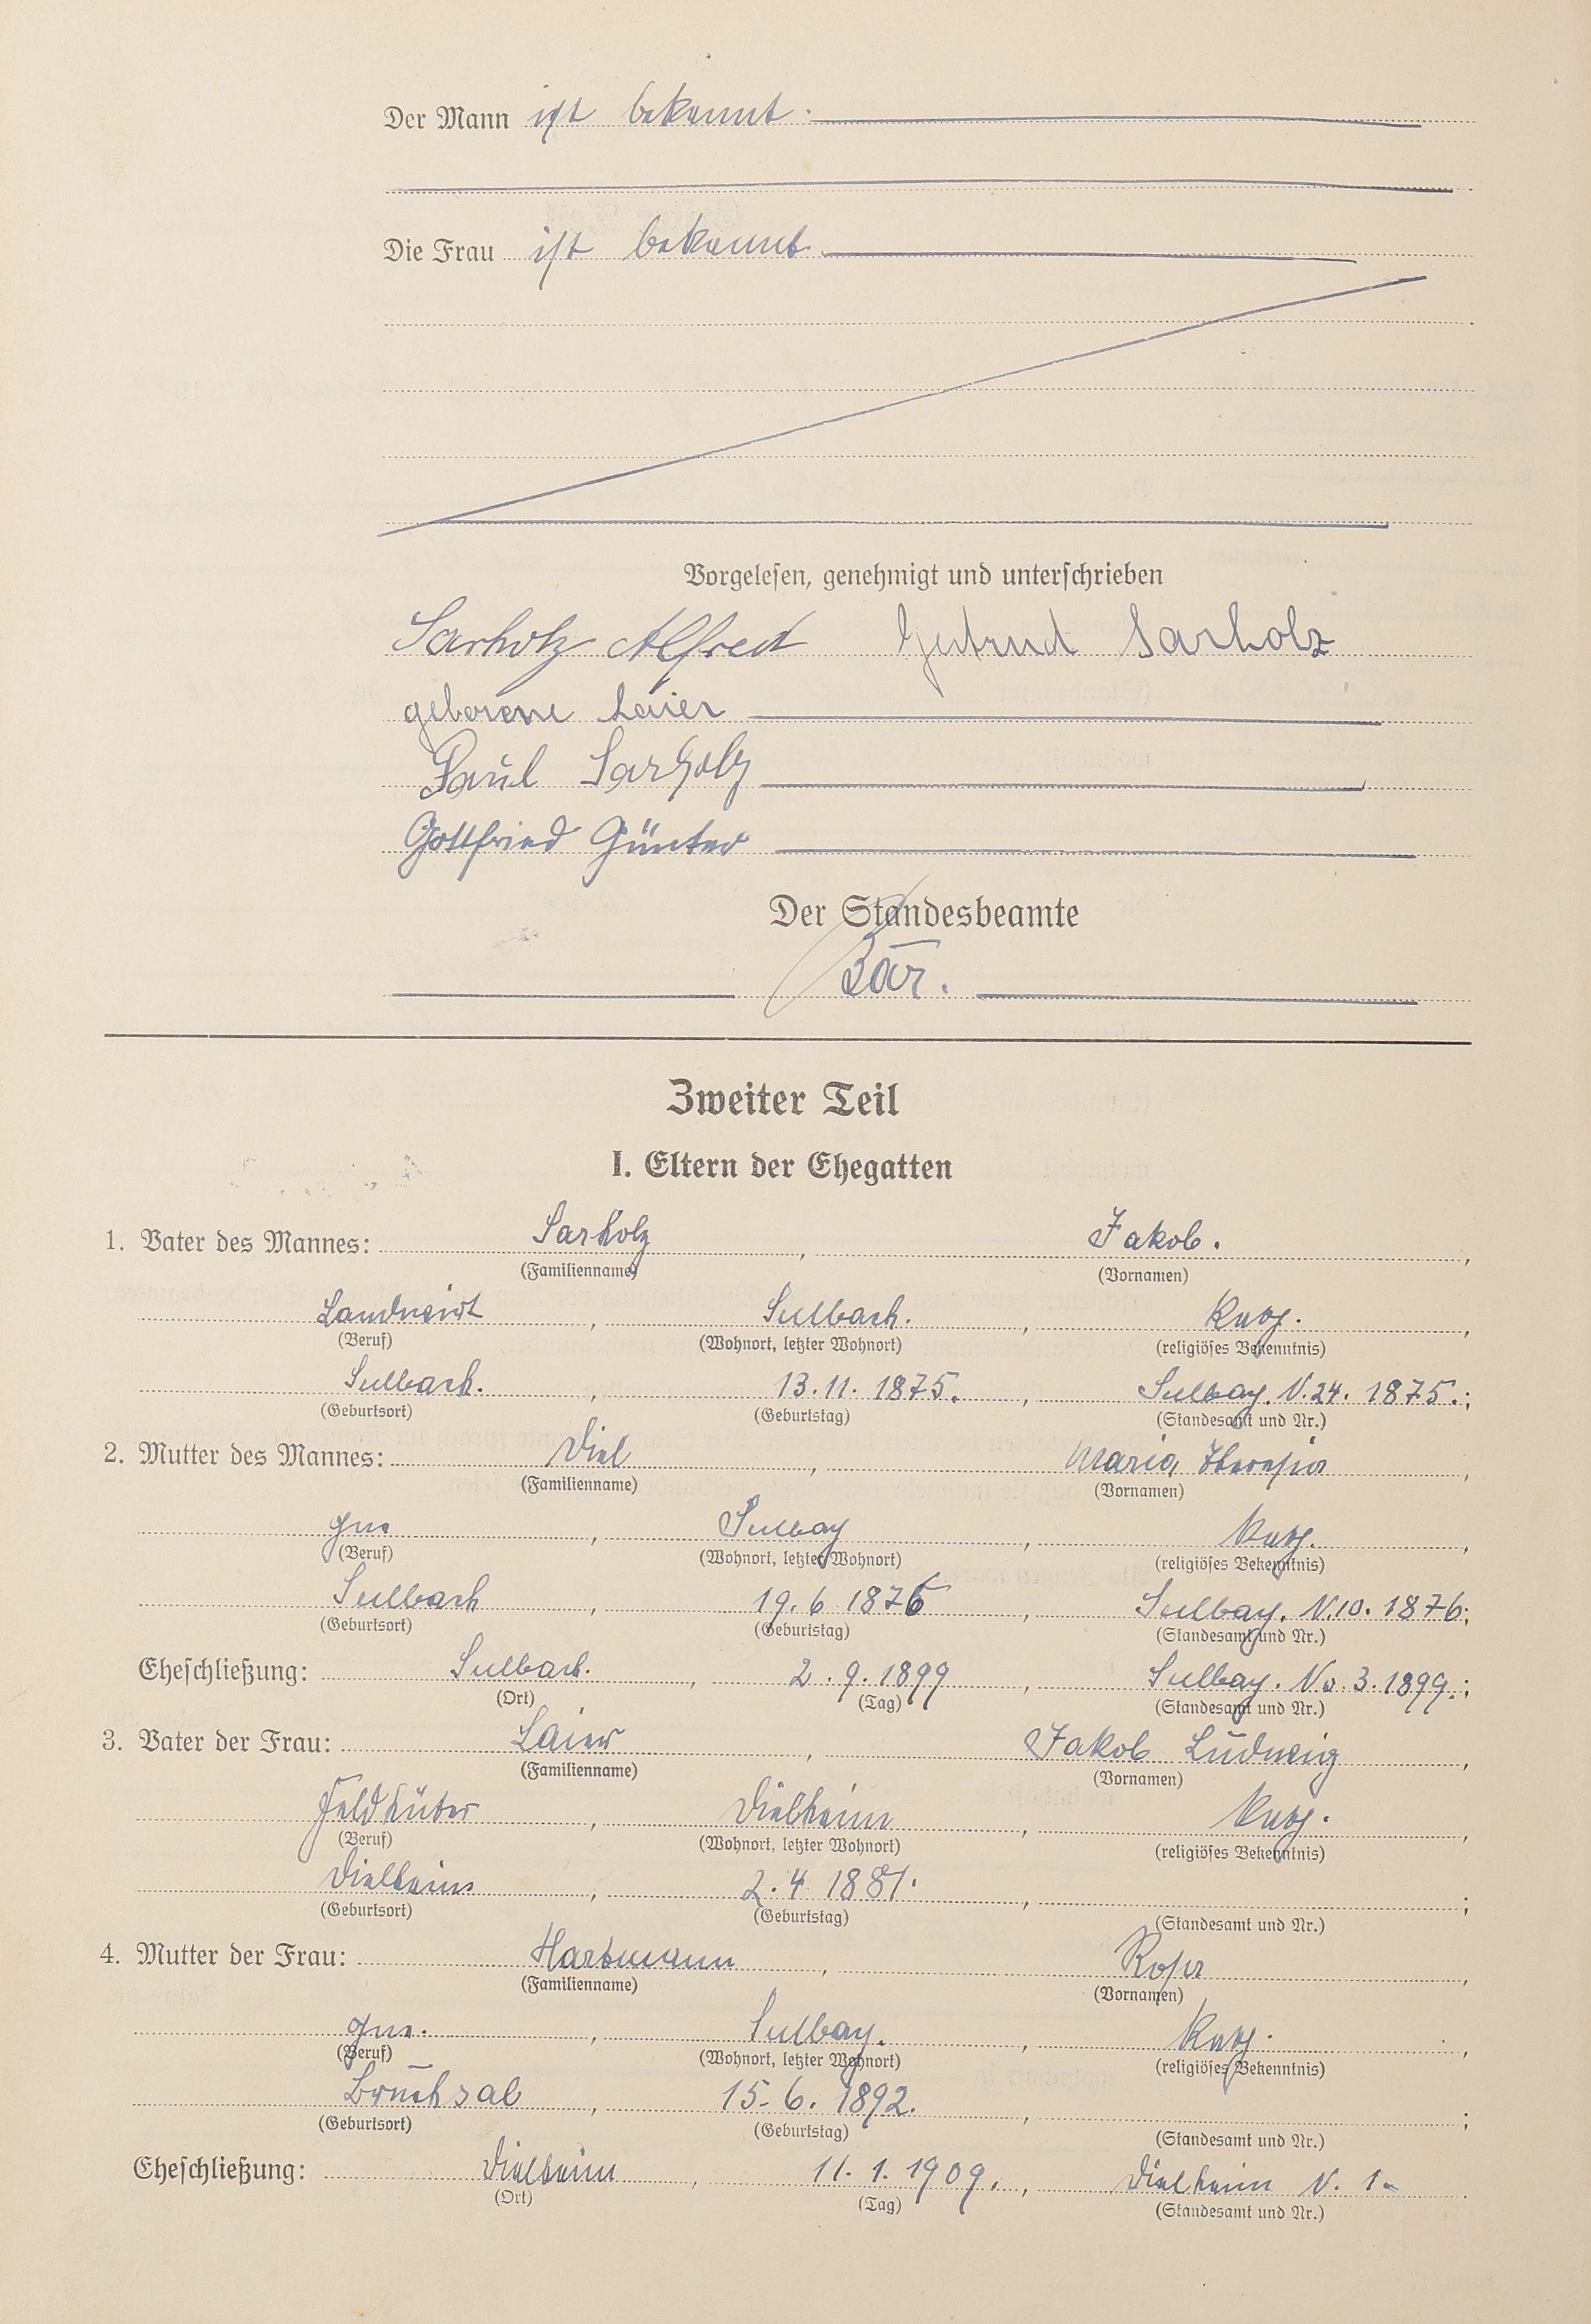 Der Mann ist bekannt.
Die Frau ist bekannt.
Vorgelesen, genehmigt und unterschrieben
Sarholz Alfred Gertrud Sarholz
geborene Laier
Paul Sarholz
Gottfried Günter
Der Standesbeamte
Bär.
Zweiter Teil
I. Eltern der Ehegatten
1. Vater des Mannes: Sarholz, Jakob.,
(Familienname) (Vornamen)
Landwirt, Sulbach., Kath.,
(Beruf) (Wohnort, letzter Wohnort) (religiöses Bekenntnis)
Sulbach., 13.11. 1875., Sulbach. N. 24. 1875.;
(Geburtsort) (Geburtstag) (Standesamt und Nr.)
2. Mutter des Mannes: Diel, Maria Theresia,
(Familienname) (Vornamen)
, Sulbach, Kath.,
(Beruf) (Wohnort, letzter Wohnort) (religiöses Bekenntnis)
Sulbach, 19. 6 1876, Sulbach. N. 10. 1876;
(Geburtsort) (Geburtstag) (Standesamt und Nr.)
Eheschließung: Sulbach., 2. 9. 1899, Sulbach. No. 3. 1899.;
(Ort) (Tag) (Standesamt und Nr.)
3. Vater der Frau: Laier, Jakob Ludwig,
(Familienname) (Vornamen)
Feldhüter, Dielheim, Kath.,
(Beruf) (Wohnort, letzter Wohnort) (religiöses Bekenntnis)
Dielheim, 2. 4 1881., ;
(Geburtsort) (Geburtstag) (Standesamt und Nr.)
4. Mutter der Frau: Hartmann, Rosa,
(Familienname) (Vornamen)
, Sulbach., Kath.,
(Beruf) (Wohnort, letzter Wohnort) (religiöses Bekenntnis)
Bruchsal, 15. 6. 1892., ;
(Geburtsort) (Geburtstag) (Standesamt und Nr.)
Eheschließung: Dielheim, 11. 1. 1909., Dielheim N. 1.
(Ort) (Tag) (Standesamt und Nr.)